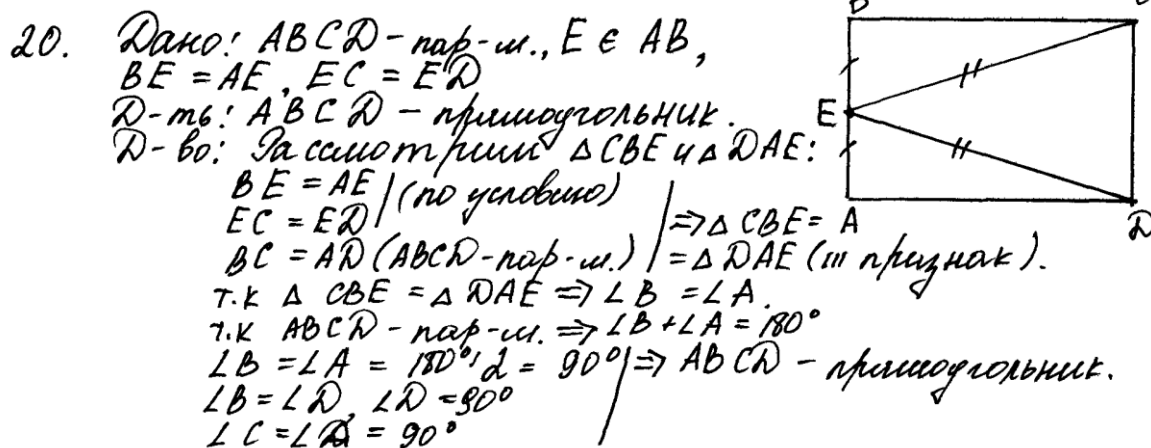 20. Дано: ABCD - пар-м., E ∈ AB,
BE = AE, EC = ED
Д-ть: ABCD - прямоугольник.
Д-во: Рассмотрим △CBE и △DAE:
BE = AE | (по условию)
EC = ED | ⇒ △CBE =
BC = AD (ABCD - пар-м.) | = △DAE (III признак).
т.к △ CBE = △ DAE ⇒ ∠B = ∠A.
т.к ABCD - пар-м. ⇒ ∠B + ∠A = 180°
∠B = ∠A = 180° : 2 = 90° | ⇒ ABCD - прямоугольник.
∠B = ∠D, ∠D = 90°
∠C = ∠A = 90°
B
E
A
D